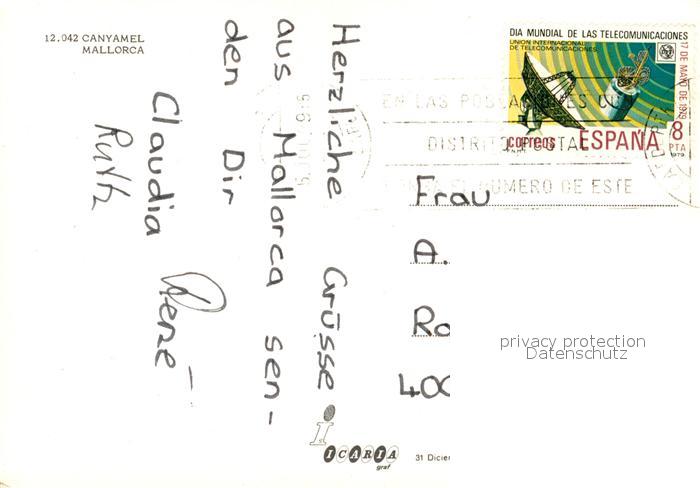 12.042 CANYAMEL
MALLORCA
Herzliche Grüsse
aus Mallorca sen-
den Dir
Claudia René
Ruth
DIA MUNDIAL DE LAS TELECOMUNICACIONES
UNION INTERNACIONAL
DE TELECOMUNICACIONES
17 DE MAYO DE 1979
CORREOS ESPAÑA 8
PTA
1979
EN LAS POBLACIONES CON
DISTRITO POSTAL
EL NUMERO DE ESTE
Frau
A.
Ro
400
privacy protection
Datenschutz
ICARIA
graf
31 Dicie